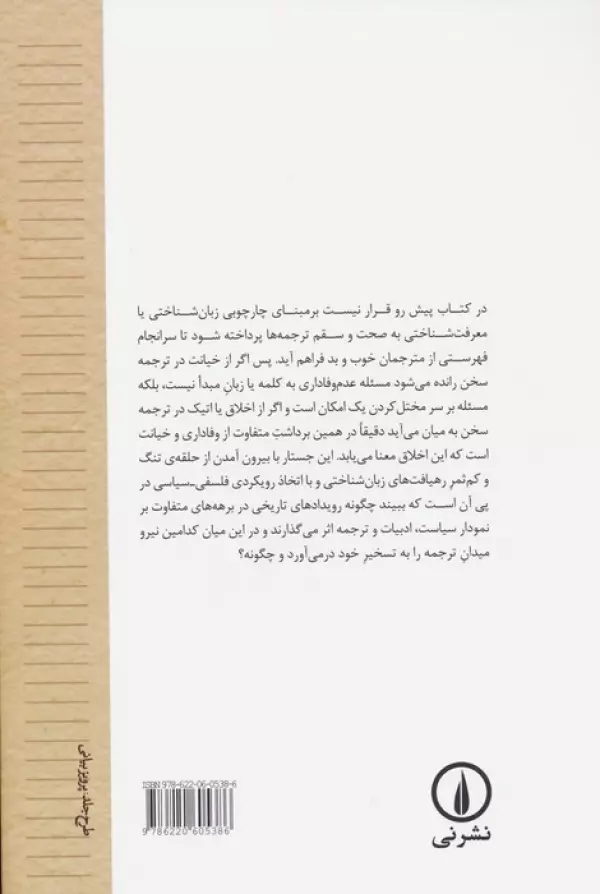 در کتاب پیش رو قرار نیست برمبنای چارچوبی زبان‌شناختی یا
معرفت‌شناختی به صحت و سقم ترجمه‌ها پرداخته شود تا سرانجام
فهرستی از مترجمان خوب و بد فراهم آید. پس اگر از خیانت در ترجمه
سخن رانده می‌شود مسئله عدم‌وفاداری به کلمه یا زبانِ مبدأ نیست، بلکه
مسئله بر سر مختل‌کردن یک امکان است و اگر از اخلاق یا اتیک در ترجمه
سخن به میان می‌آید دقیقاً در همین برداشتِ متفاوت از وفاداری و خیانت
است که این اخلاق معنا می‌یابد. این جستار با بیرون آمدن از حلقه‌ی تنگ
و کم‌ثمرِ رهیافت‌های زبان‌شناختی و با اتخاذ رویکردی فلسفی‌ـ‌سیاسی در
پی آن است که ببیند چگونه رویدادهای تاریخی در برهه‌های متفاوت بر
نمودار سیاست، ادبیات و ترجمه اثر می‌گذارند و در این میان کدامین نیرو
میدانِ ترجمه را به تسخیرِ خود درمی‌آورد و چگونه؟
طرح جلد: پرویز بیانی
ISBN 978-622-06-0538-6
9 786220 605386
نشرنی